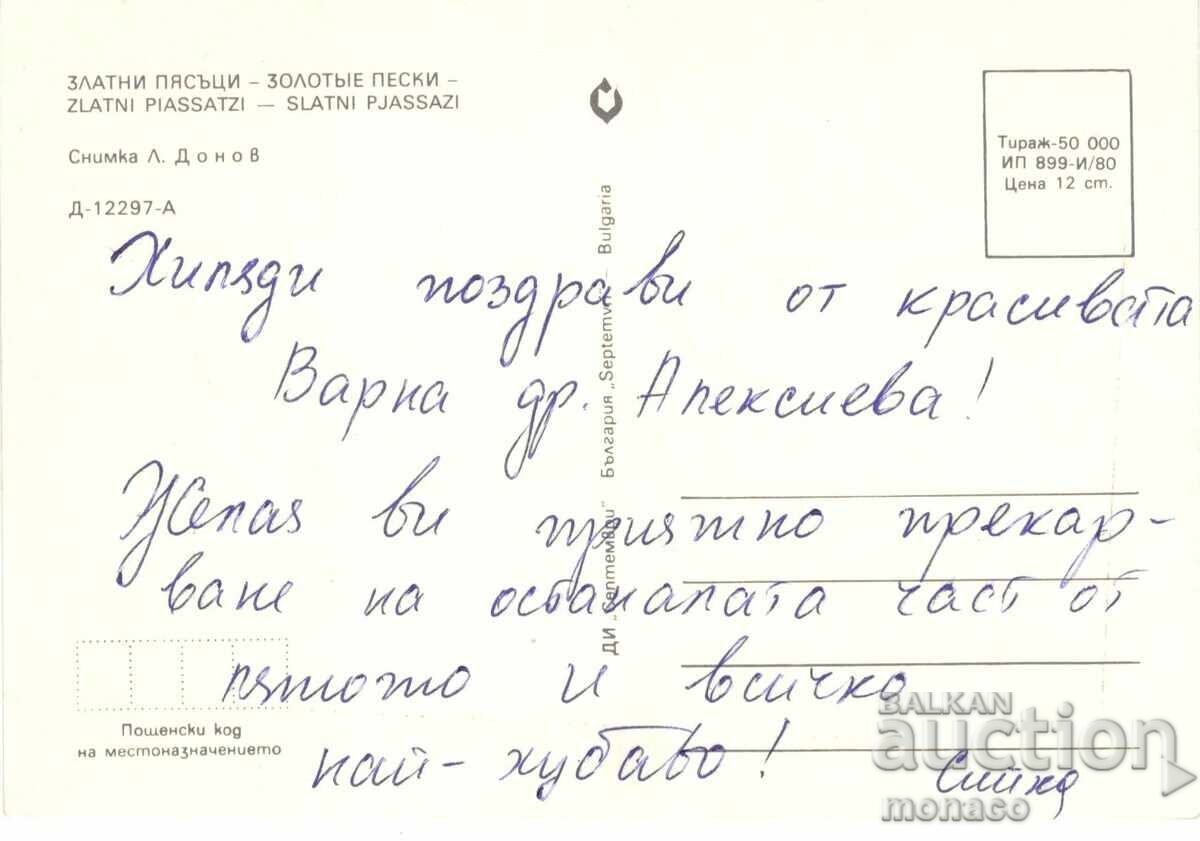 ЗЛАТНИ ПЯСЪЦИ – ЗОЛОТЫЕ ПЕСКИ –
ZLATNI PIASSATZI — SLATNI PJASSAZI
Снимка Л. Донов
Д-12297-А
Тираж-50 000
ИП 899-И/80
Цена 12 ст.
ДИ „Септември" България „Septemvri" – Bulgaria
Хиляди поздрави от красивата
Варна др. Алексиева!
Желая ви приятно прекар-
ване на останалата част от
лятото и всичко
най-хубаво!
Сийка
Пощенски код
на местоназначението
BALKAN
auction
monaco